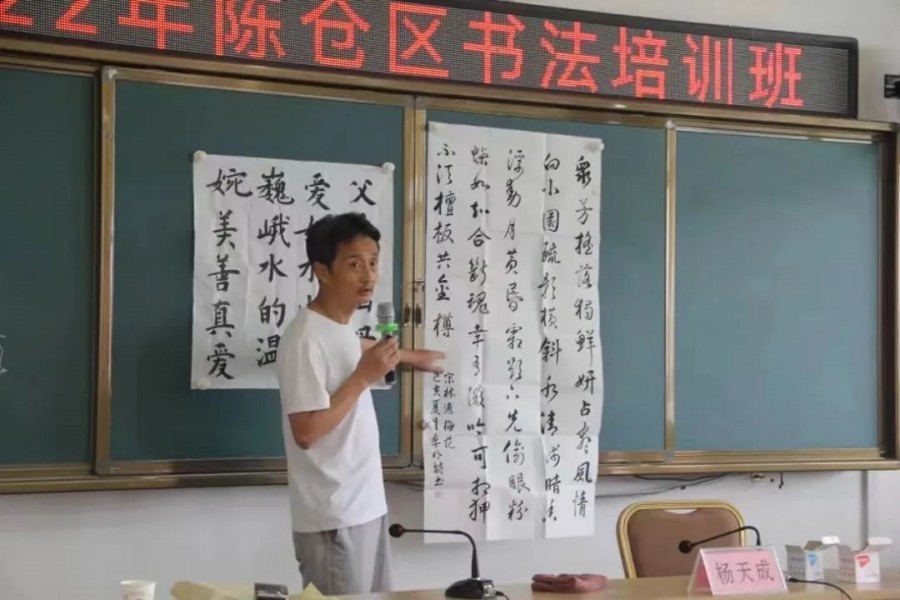 22年陈仓区书法培训班
衆芳摇落獨鮮妍占盡風情
向小園疏影横斜水清浅暗香
浮動月黄昏霜禽欲下先偷眼粉
蝶如知合斷魂幸有微吟可相狎
不須檀板共金樽
宋林逋梅花
己亥夏月李
父
爱
巍峨水的温
婉美善真爱
杨天成